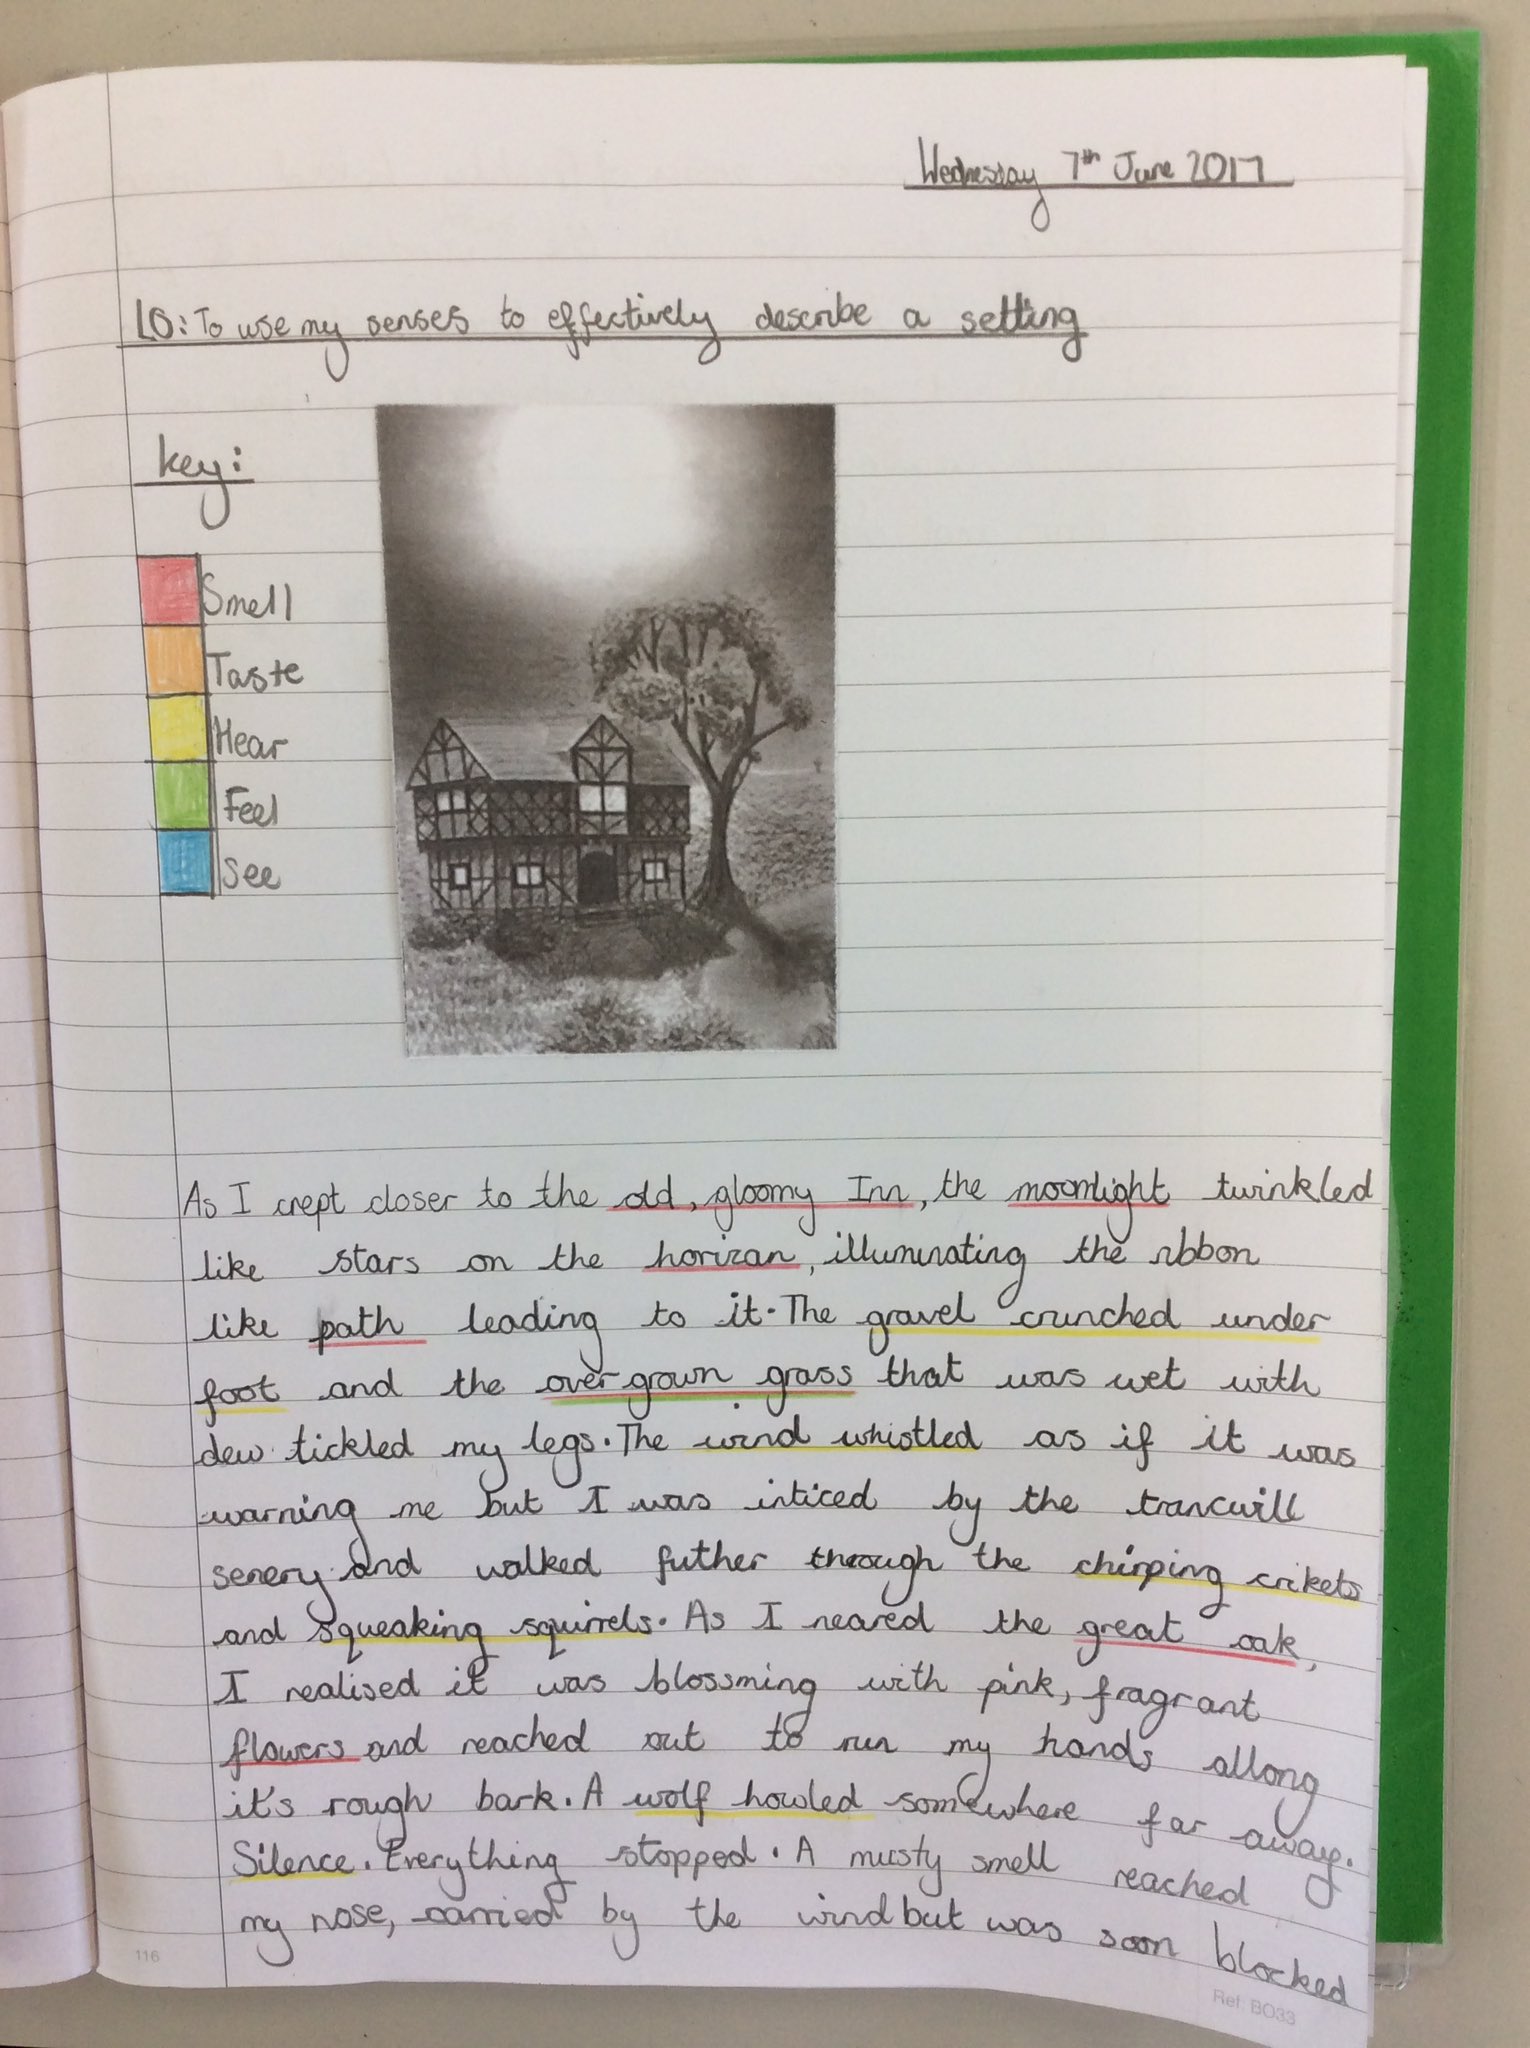 Wednesday 7th June 2017
LO: To use my senses to effectively describe a setting
key:
Smell
Taste
Hear
Feel
See
As I crept closer to the old, gloomy Inn, the moonlight twinkled
like stars on the horizan, illuminating the ribbon
like path leading to it. The gravel crunched under
foot and the overgrown grass that was wet with
dew tickled my legs. The wind whistled as if it was
warning me but I was inticed by the trancwill
senery and walked futher through the chirping crikets
and squeaking squirrels. As I neared the great oak,
I realised it was blossming with pink, fragrant
flowers and reached out to run my hands allong
it's rough bark. A wolf howled somewhere far away.
Silence. Everything stopped. A musty smell reached
my nose, carried by the wind but was soon blocked
116
Ref: BO33